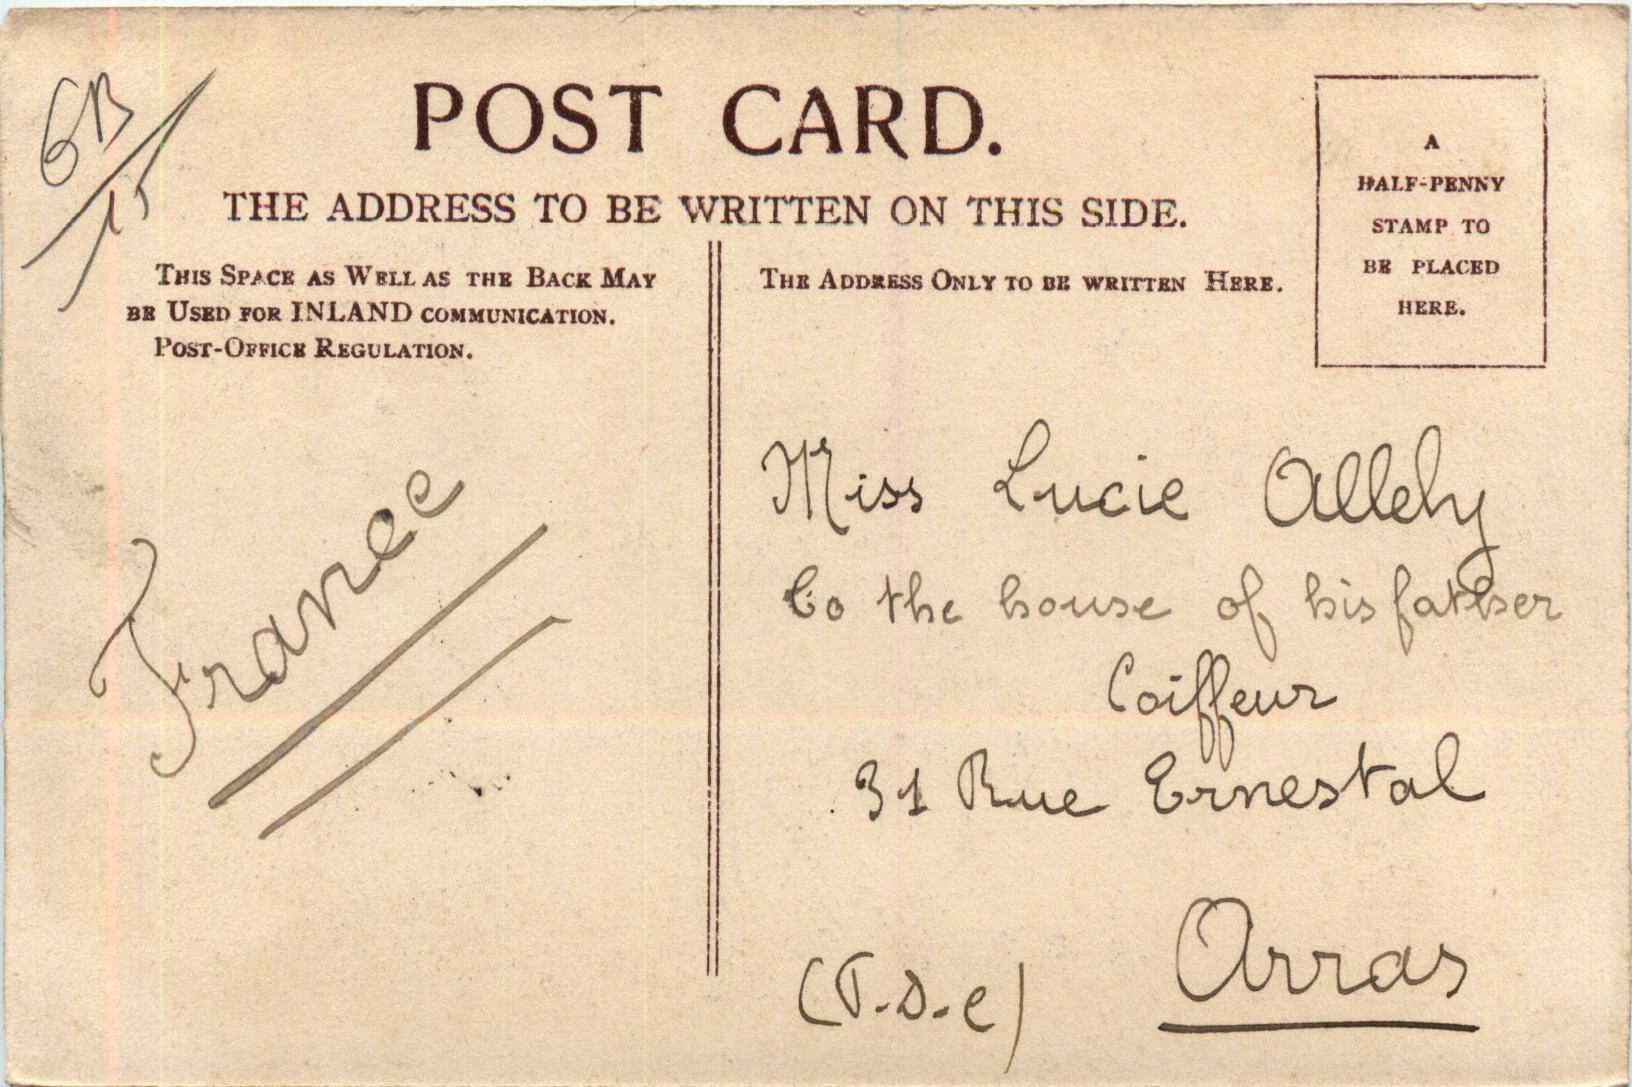 GB
15
POST CARD.
THE ADDRESS TO BE WRITTEN ON THIS SIDE.
THIS SPACE AS WELL AS THE BACK MAY
BE USED FOR INLAND COMMUNICATION.
POST-OFFICE REGULATION.
THE ADDRESS ONLY TO BE WRITTEN HERE.
A
HALF-PENNY
STAMP TO
BE PLACED
HERE.
France
Miss Lucie
to the house of his father
Coiffeur
31 Rue Ernestal
Arras